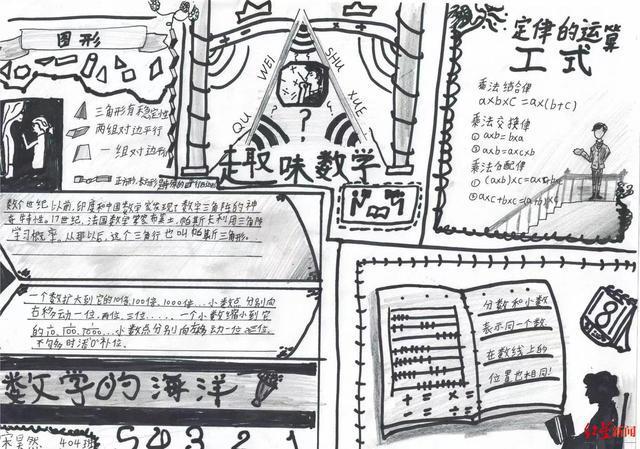 图形
三角形有稳定性
两组对边平行
一组对边
QU WEI SHU XUE
?
趣味数学
定律的运算
工式
乘法结合律
a×b×c=a×(b+c)
乘法交换律
① a×b=b×a
② a×b=a×c×b
乘法分配律
① (a×b)×c=a×
②
数个世纪以前,印度和中国数学家发现了数字三角阵的神
奇特性。17世纪,法国数学家布莱士.帕斯卡利用三角阵
学习概率。从那以后,这个三角行也叫帕斯三角形。
一个数扩大到它的10倍,100倍,1000倍...小数点分别向
右移动一位,两位,三位.....一个小数缩小到它
小数点分别向左移动一位
不够时添"0"补位。
数文学的海洋
分数和小数
表示同一个数,
在数线上的
位置也相同!
+ = - =
÷ = × =
8
宋昊然 404班
5 0 3 2 1
红星新闻